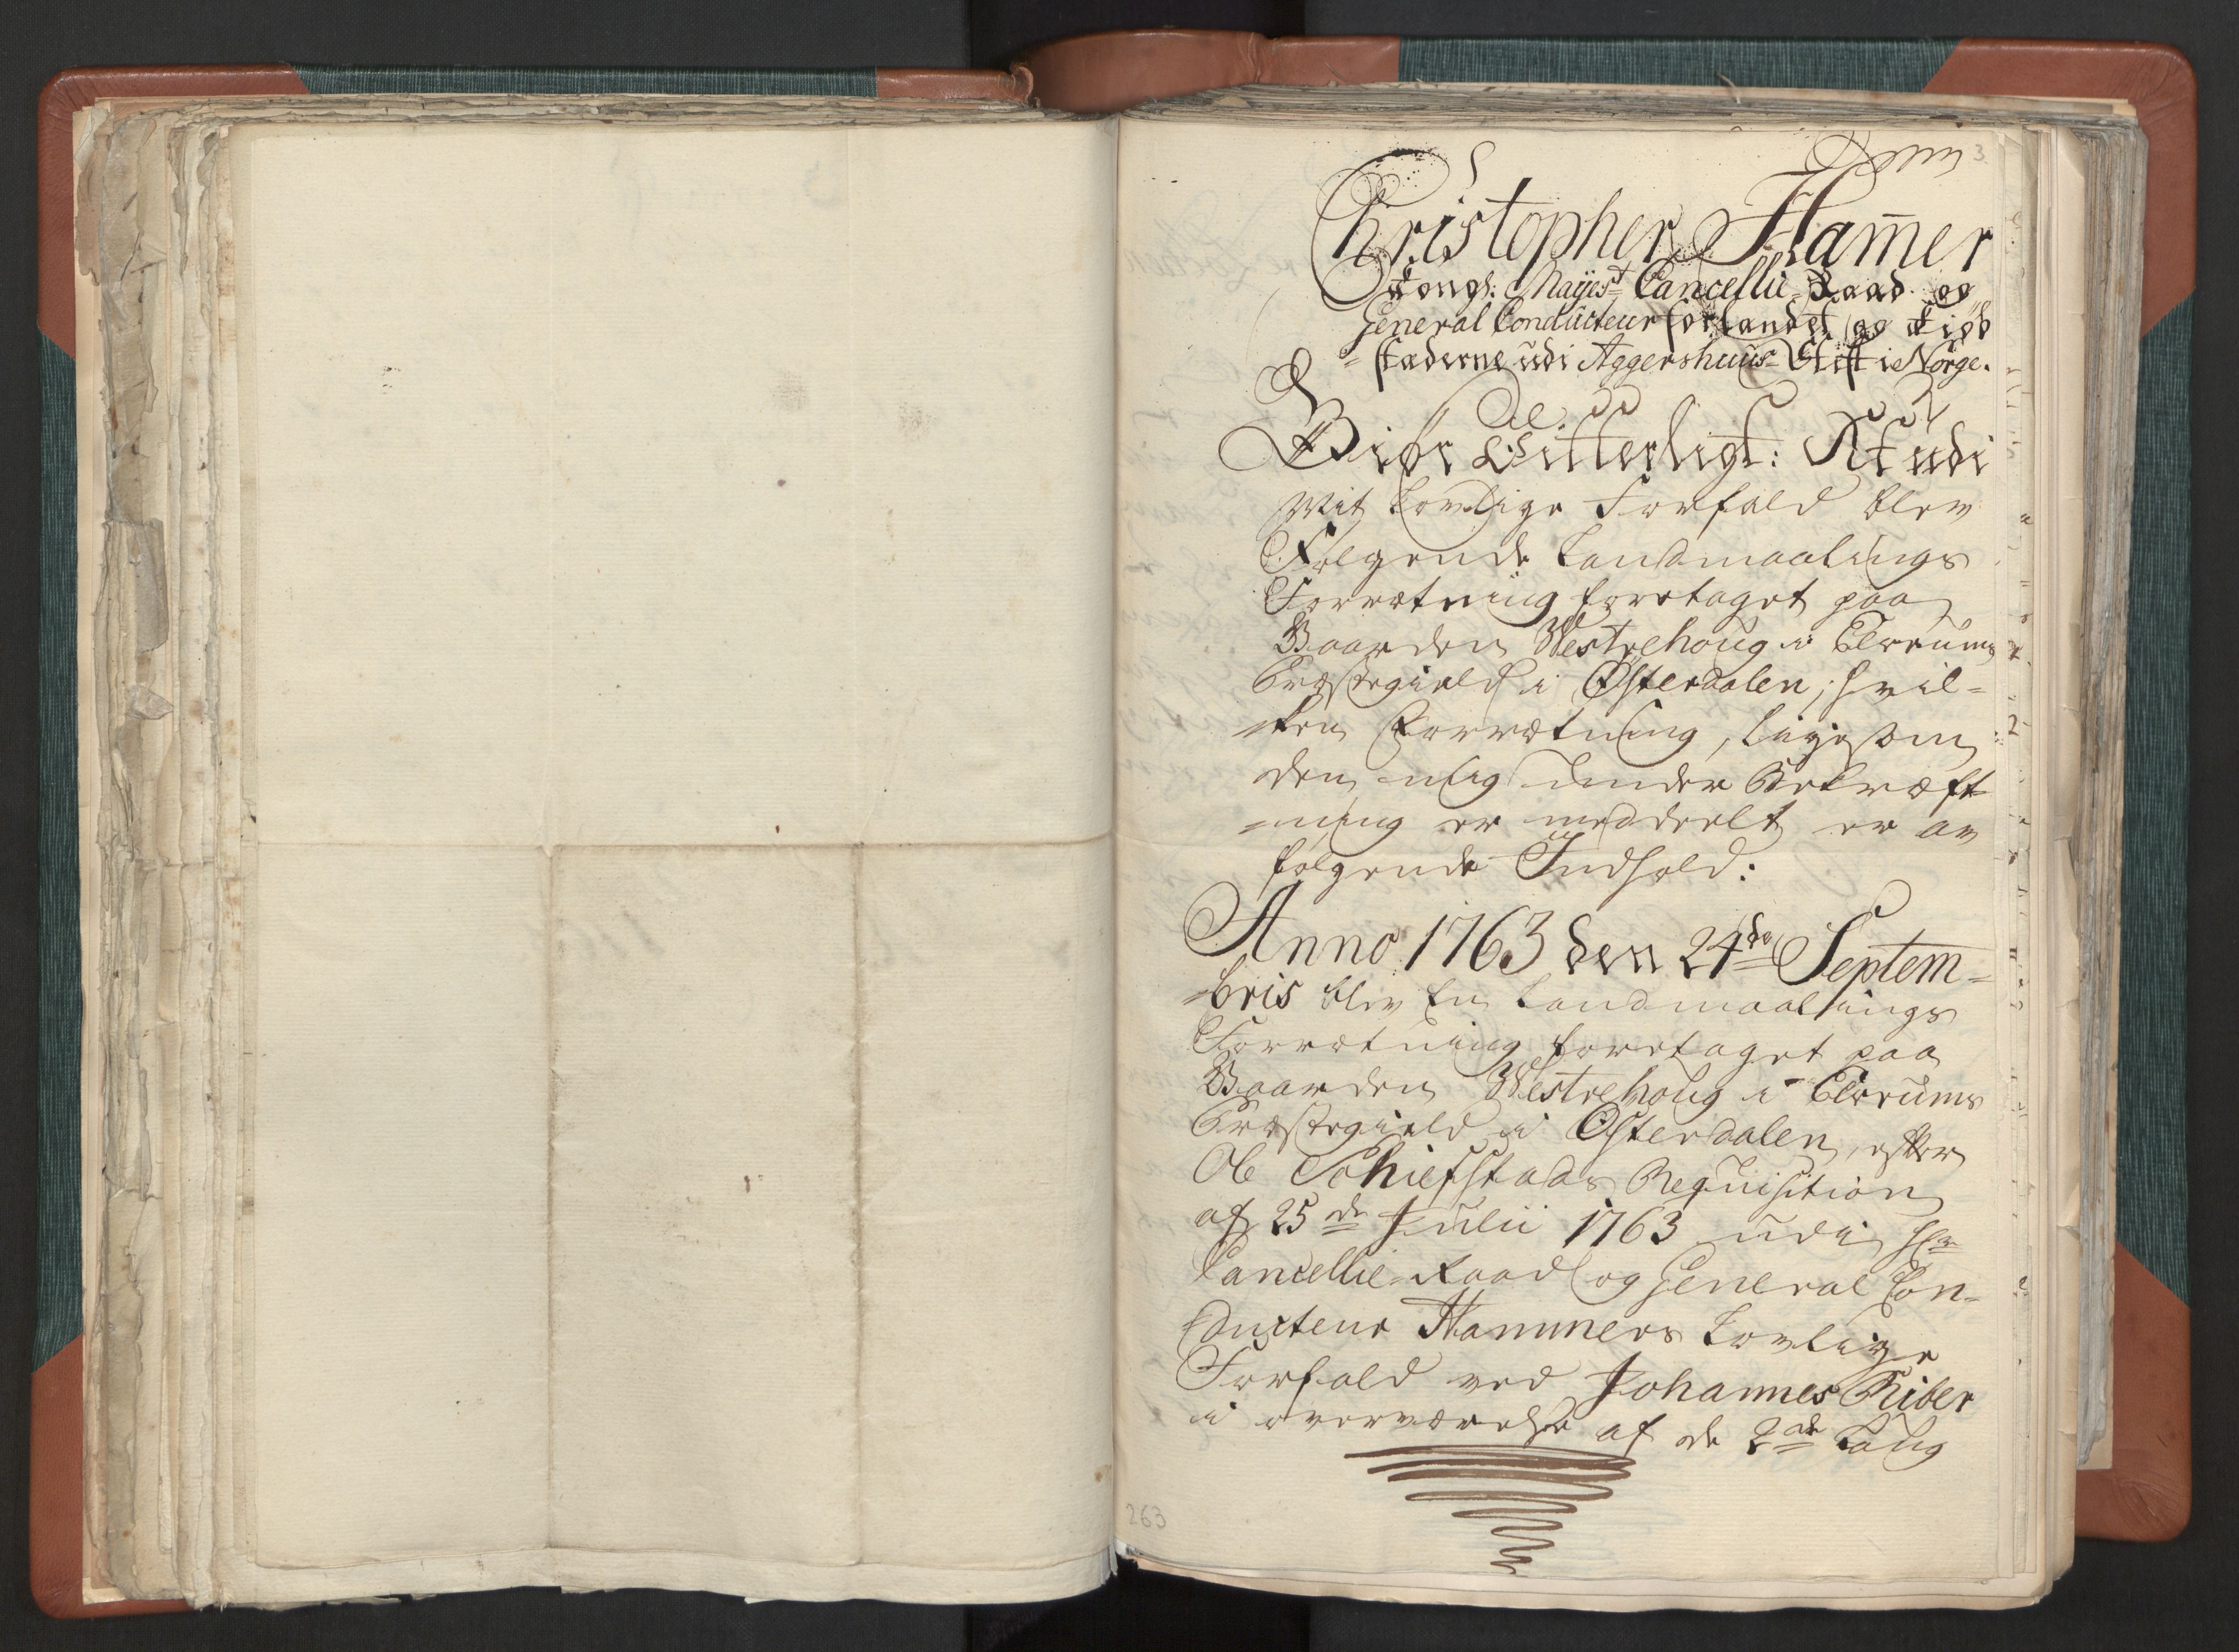 3.
Christopher Ham̄er
Kongl: Mayestˢ Cancellie-Raad og
General Conducteur for Landet og Kiøb
=stæderne udi Aggershuus-Stift i Norge.
Giør Witterligt: At udi
Mit Lovlige Forfald blev
Følgende Landmaalings
Forrætning foretaget paa
Gaarden Westrehoug i Elverums
Præstegield i Østerdalen, hvil-
=ken Forrætning, ligesom
den mig under Bekræft-
=ning er meddeelt er av
følgende Indhold:
Anno 1763 den 24de Septem-
=bris blev En Landmaalings
Forrætning foretaget paa
Gaarden Westrehoug i Elverums
Præstegield i Østerdalen, efter
Ole Schiefstads Requisition
af 25de Julii 1763 udi Hr
Cancellie-Raad og General Con-
=ducteur Hammers Lovlige
Forfald ved Johannes Riber
i overværelse af de 2de Laug
263